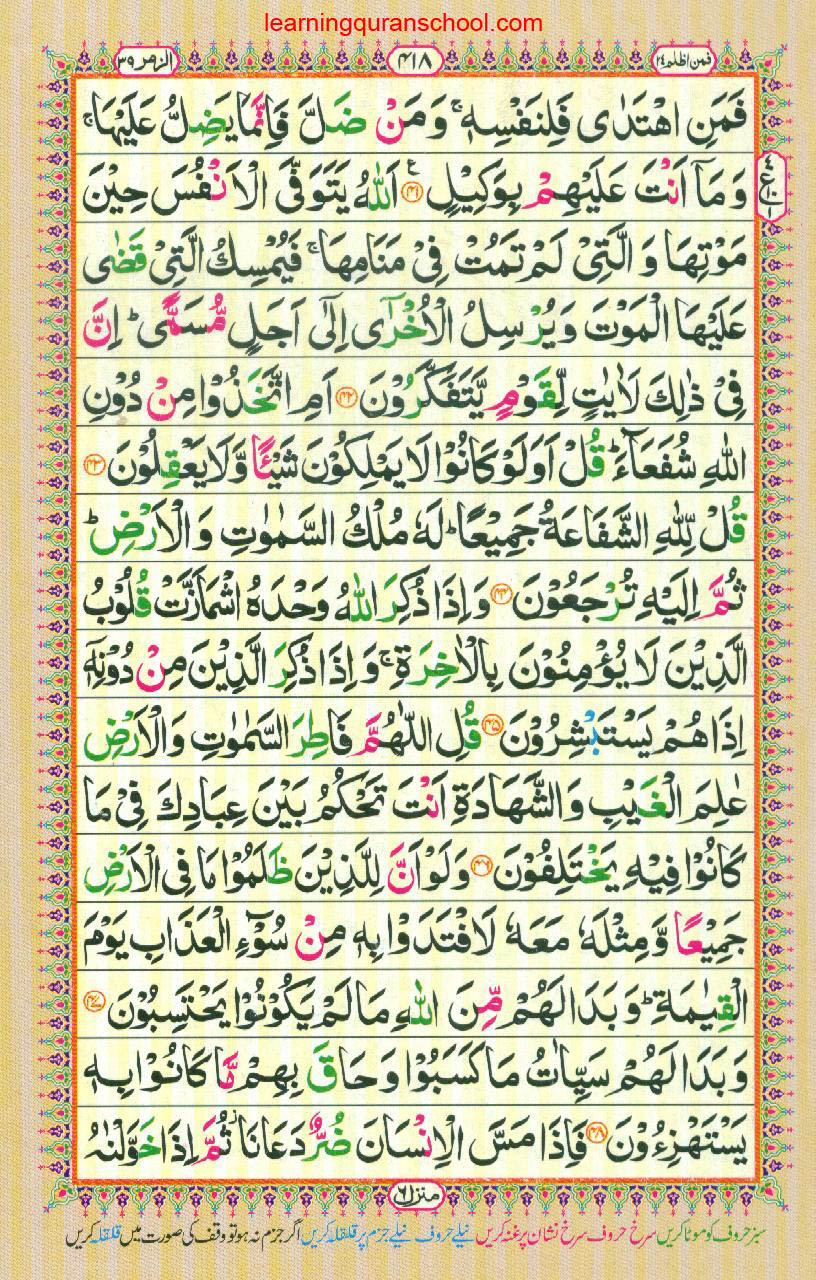 learningquranschool.com
فمن اظلم ٢٤
٤١٨
الزمر ٣٩
فَمَنِ اهْتَدٰى فَلِنَفْسِهٖ ۚ وَ مَنْ ضَلَّ فَاِنَّمَا يَضِلُّ عَلَيْهَا ۚ
وَ مَاۤ اَنْتَ عَلَيْهِمْ بِوَكِيْلٍ ﴿٤١﴾ ع اَللّٰهُ يَتَوَفَّى الْاَنْفُسَ حِيْنَ
مَوْتِهَا وَ الَّتِيْ لَمْ تَمُتْ فِيْ مَنَامِهَا ۚ فَيُمْسِكُ الَّتِيْ قَضٰى
عَلَيْهَا الْمَوْتَ وَ يُرْسِلُ الْاُخْرٰۤى اِلٰۤى اَجَلٍ مُّسَمًّى ؕ اِنَّ
فِيْ ذٰلِكَ لَاٰيٰتٍ لِّقَوْمٍ يَّتَفَكَّرُوْنَ ﴿٤٢﴾ اَمِ اتَّخَذُوْا مِنْ دُوْنِ
اللّٰهِ شُفَعَآءَ ؕ قُلْ اَوَلَوْ كَانُوْا لَا يَمْلِكُوْنَ شَيْـًٔا وَّ لَا يَعْقِلُوْنَ ﴿٤٣﴾
قُلْ لِّلّٰهِ الشَّفَاعَةُ جَمِيْعًا ؕ لَهٗ مُلْكُ السَّمٰوٰتِ وَ الْاَرْضِ ؕ
ثُمَّ اِلَيْهِ تُرْجَعُوْنَ ﴿٤٤﴾ وَ اِذَا ذُكِرَ اللّٰهُ وَحْدَهُ اشْمَاَزَّتْ قُلُوْبُ
الَّذِيْنَ لَا يُؤْمِنُوْنَ بِالْاٰخِرَةِ ۚ وَ اِذَا ذُكِرَ الَّذِيْنَ مِنْ دُوْنِهٖۤ
اِذَا هُمْ يَسْتَبْشِرُوْنَ ﴿٤٥﴾ قُلِ اللّٰهُمَّ فَاطِرَ السَّمٰوٰتِ وَ الْاَرْضِ
عٰلِمَ الْغَيْبِ وَ الشَّهَادَةِ اَنْتَ تَحْكُمُ بَيْنَ عِبَادِكَ فِيْ مَا
كَانُوْا فِيْهِ يَخْتَلِفُوْنَ ﴿٤٦﴾ وَ لَوْ اَنَّ لِلَّذِيْنَ ظَلَمُوْا مَا فِى الْاَرْضِ
جَمِيْعًا وَّ مِثْلَهٗ مَعَهٗ لَافْتَدَوْا بِهٖ مِنْ سُوْٓءِ الْعَذَابِ يَوْمَ
الْقِيٰمَةِ ؕ وَ بَدَا لَهُمْ مِّنَ اللّٰهِ مَا لَمْ يَكُوْنُوْا يَحْتَسِبُوْنَ ﴿٤٧﴾
وَ بَدَا لَهُمْ سَيِّاٰتُ مَا كَسَبُوْا وَ حَاقَ بِهِمْ مَّا كَانُوْا بِهٖ
يَسْتَهْزِءُوْنَ ﴿٤٨﴾ فَاِذَا مَسَّ الْاِنْسَانَ ضُرٌّ دَعَانَا ؗ ثُمَّ اِذَا خَوَّلْنٰهُ
منزل ٦
سبز حروف کو موٹا کریں سرخ حروف سرخ نشان پر غنہ کریں نیلے حروف نیلے جزم پر قلقلہ کریں اگر جزم نہ ہو تو وقف کی صورت میں قلقلہ کریں